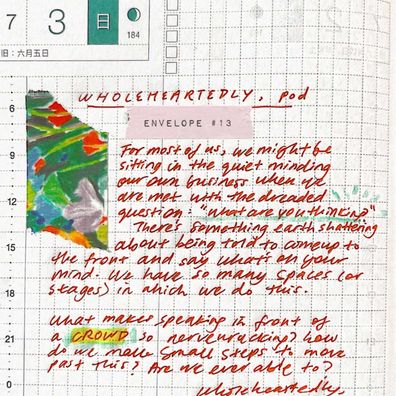 7 3 日
184
旧：六月五日
WHOLEHEARTEDLY, pod
ENVELOPE #13
For most of us, we might be
sitting in the quiet minding
our own business when we
are met with the dreaded
question: "what are you thinking"
There's something earth shattering
about being told to come up to
the front and say what's on your
mind. We have so many spaces (or
stages) in which we do this.
What makes speaking in front of
a CROWD so nervewracking? How
do we make small steps to move
past this? Are we ever able to?
Wholeheartedly,
6
9
12
15
18
21
0